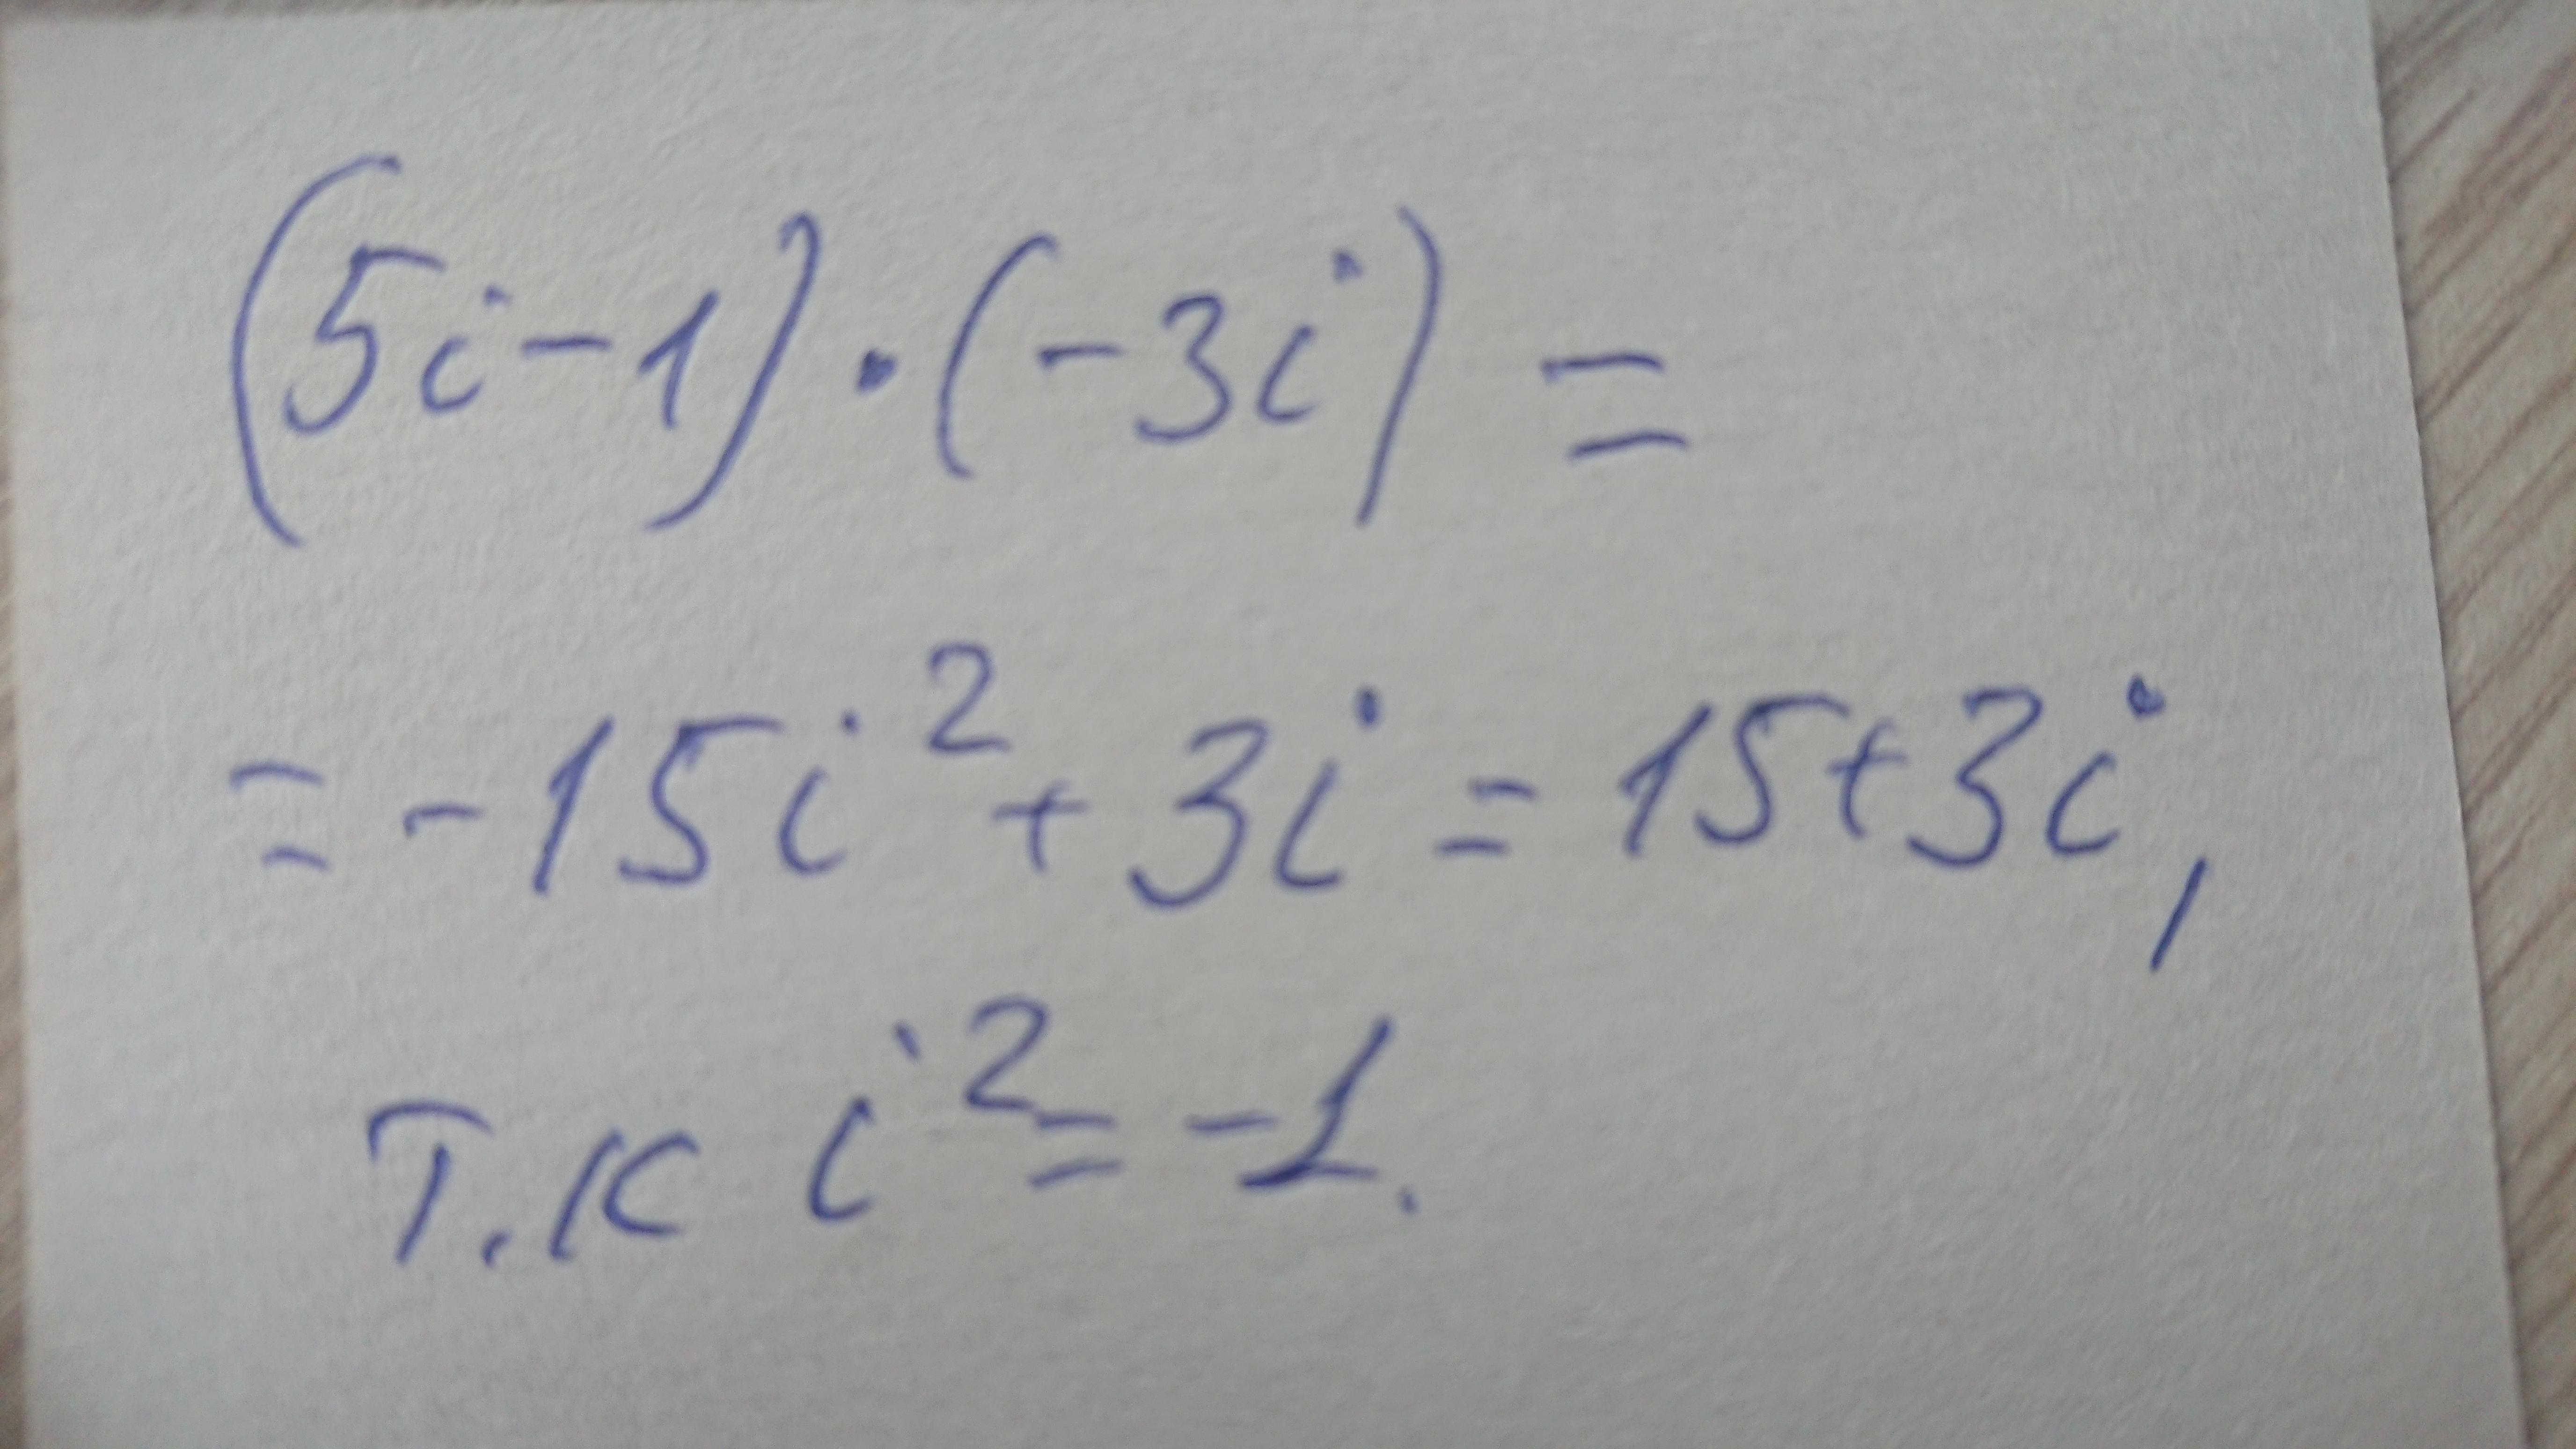 (5i-1)·(-3i)=
=-15i²+3i=15+3i,
т.к i²=-1.